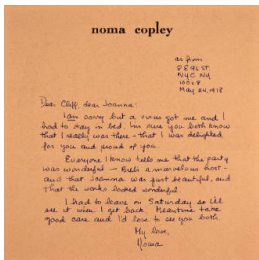 noma copley
as from
NYC NY
May 24, 1978
Dear Cliff, dear Joanna:
I am sorry but a virus got me and I
had to stay in bed. I'm sure you both know
that I really was there - that I was delighted
for you and proud of you.
Everyone I know tells me that the party
was wonderful - a marvelous host -
and that Joanna was just beautiful, and
that the works looked wonderful
I had to leave on Saturday so I'll
see it when I get back. Meantime take
good care and I'd love to see you both.
My love,
Noma